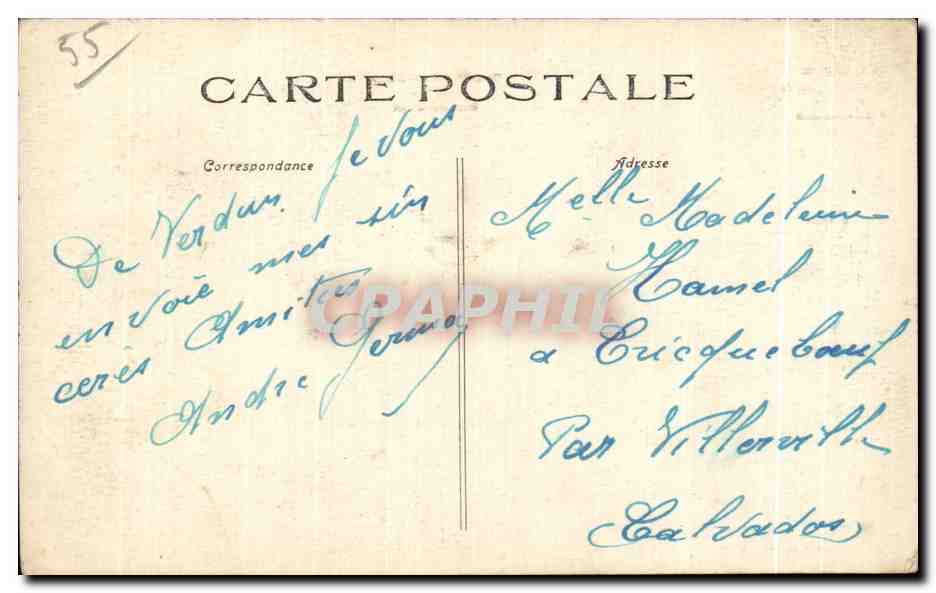 55
CARTE POSTALE
Correspondance
De Verdun je vous
envoie mes sin
cerès Amitiés
André
Adresse
Melle Madeleine
Hamel
a Cricqueboeuf
Par Villerville
Calvados
CPAPHIL